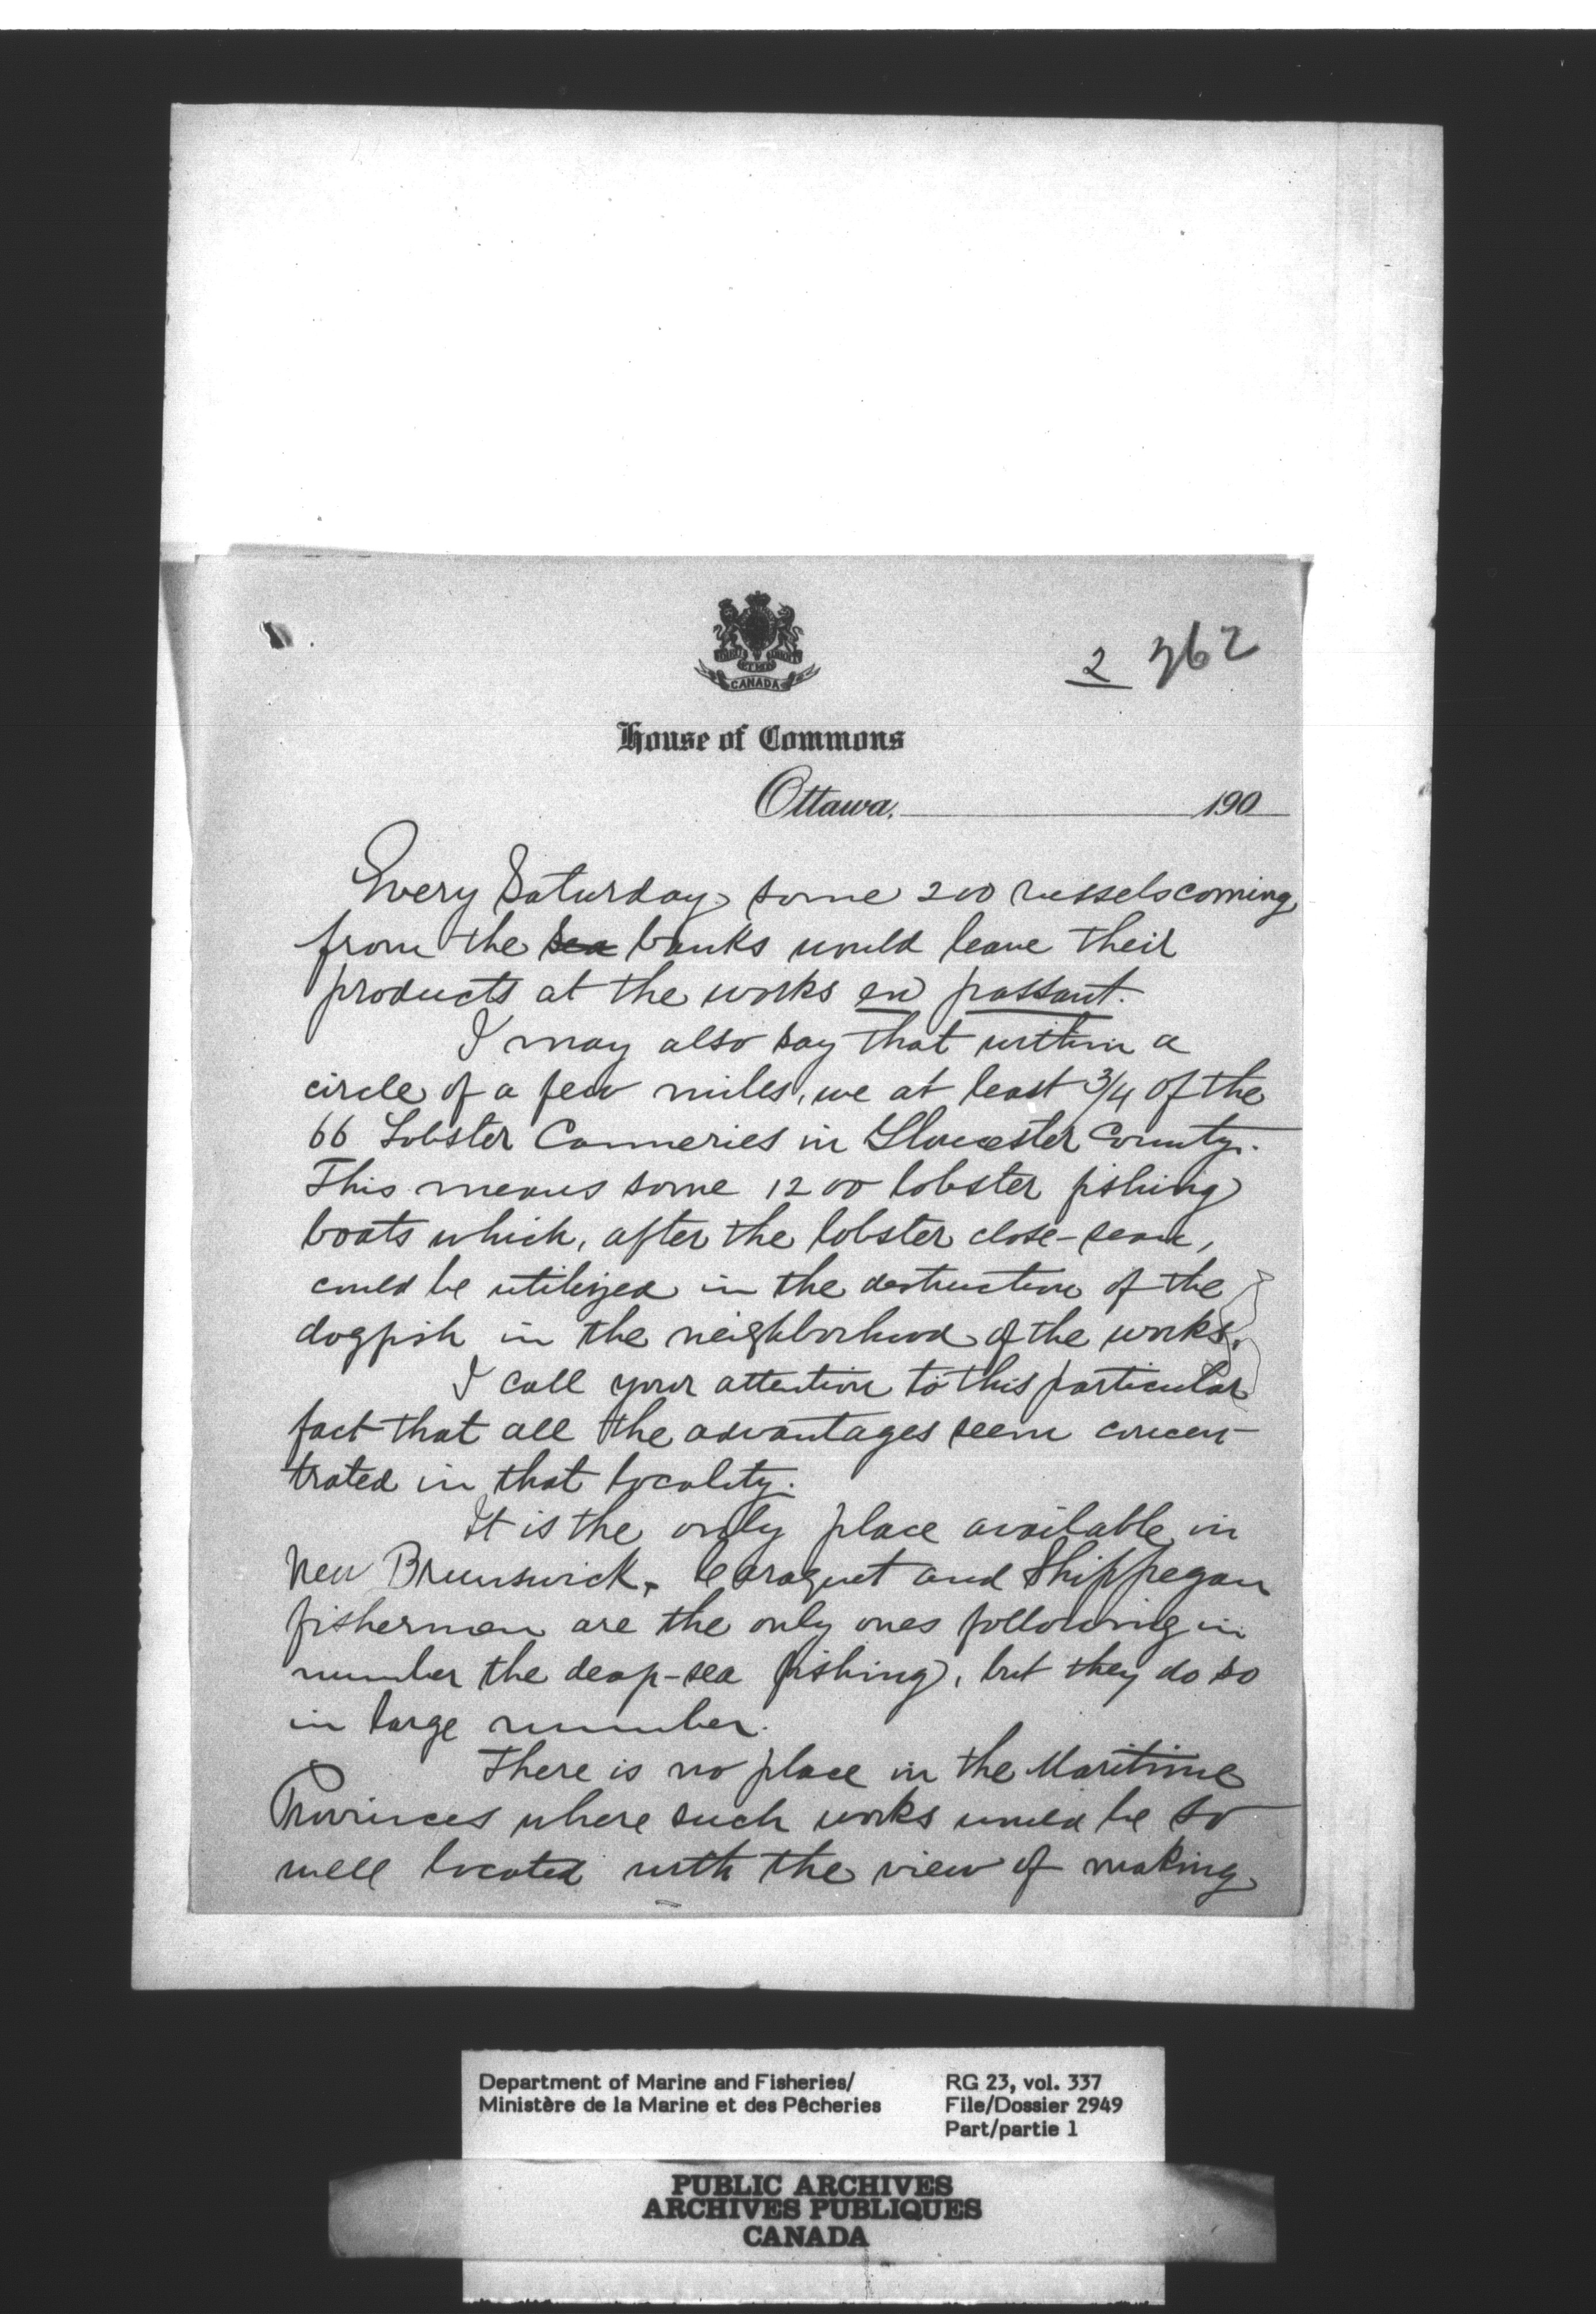 CANADA
2 362
House of Commons
Ottawa, 190
Every Saturday, some 200 vessels coming
from the sea banks would leave their
products at the works en passant.
I may also say that within a
circle of a few miles, we at least 3/4 of the
66 Lobster Canneries in Gloucester County.
This means some 1200 lobster fishing
boats which, after the lobster close-
could be utilized in the destruction of the
dogfish in the neighborhood of the works.
I call your attention to this particular
fact that all the advantages seem concen-
trated in that locality.
It is the only place available in
New Brunswick. Caraquet and Shippegan
fishermen are the only ones following in
number the deep-sea fishing, but they do so
in large number.
There is no place in the Maritime
Provinces where such works would be so
well located with the view of making
Department of Marine and Fisheries/
Ministère de la Marine et des Pêcheries
RG 23, vol. 337
File/Dossier 2949
Part/partie 1
PUBLIC ARCHIVES
ARCHIVES PUBLIQUES
CANADA